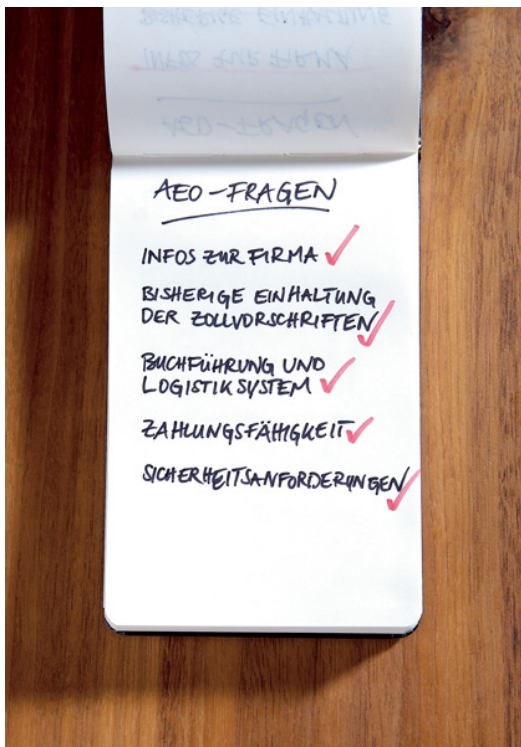 AEO-FRAGEN
INFOS ZUR FIRMA
BISHERIGE EINHALTUNG
DER ZOLLVORSCHRIFTEN
BUCHFÜHRUNG UND
LOGISTIKSYSTEM
ZAHLUNGSFÄHIGKEIT
SICHERHEITSANFORDERUNGEN